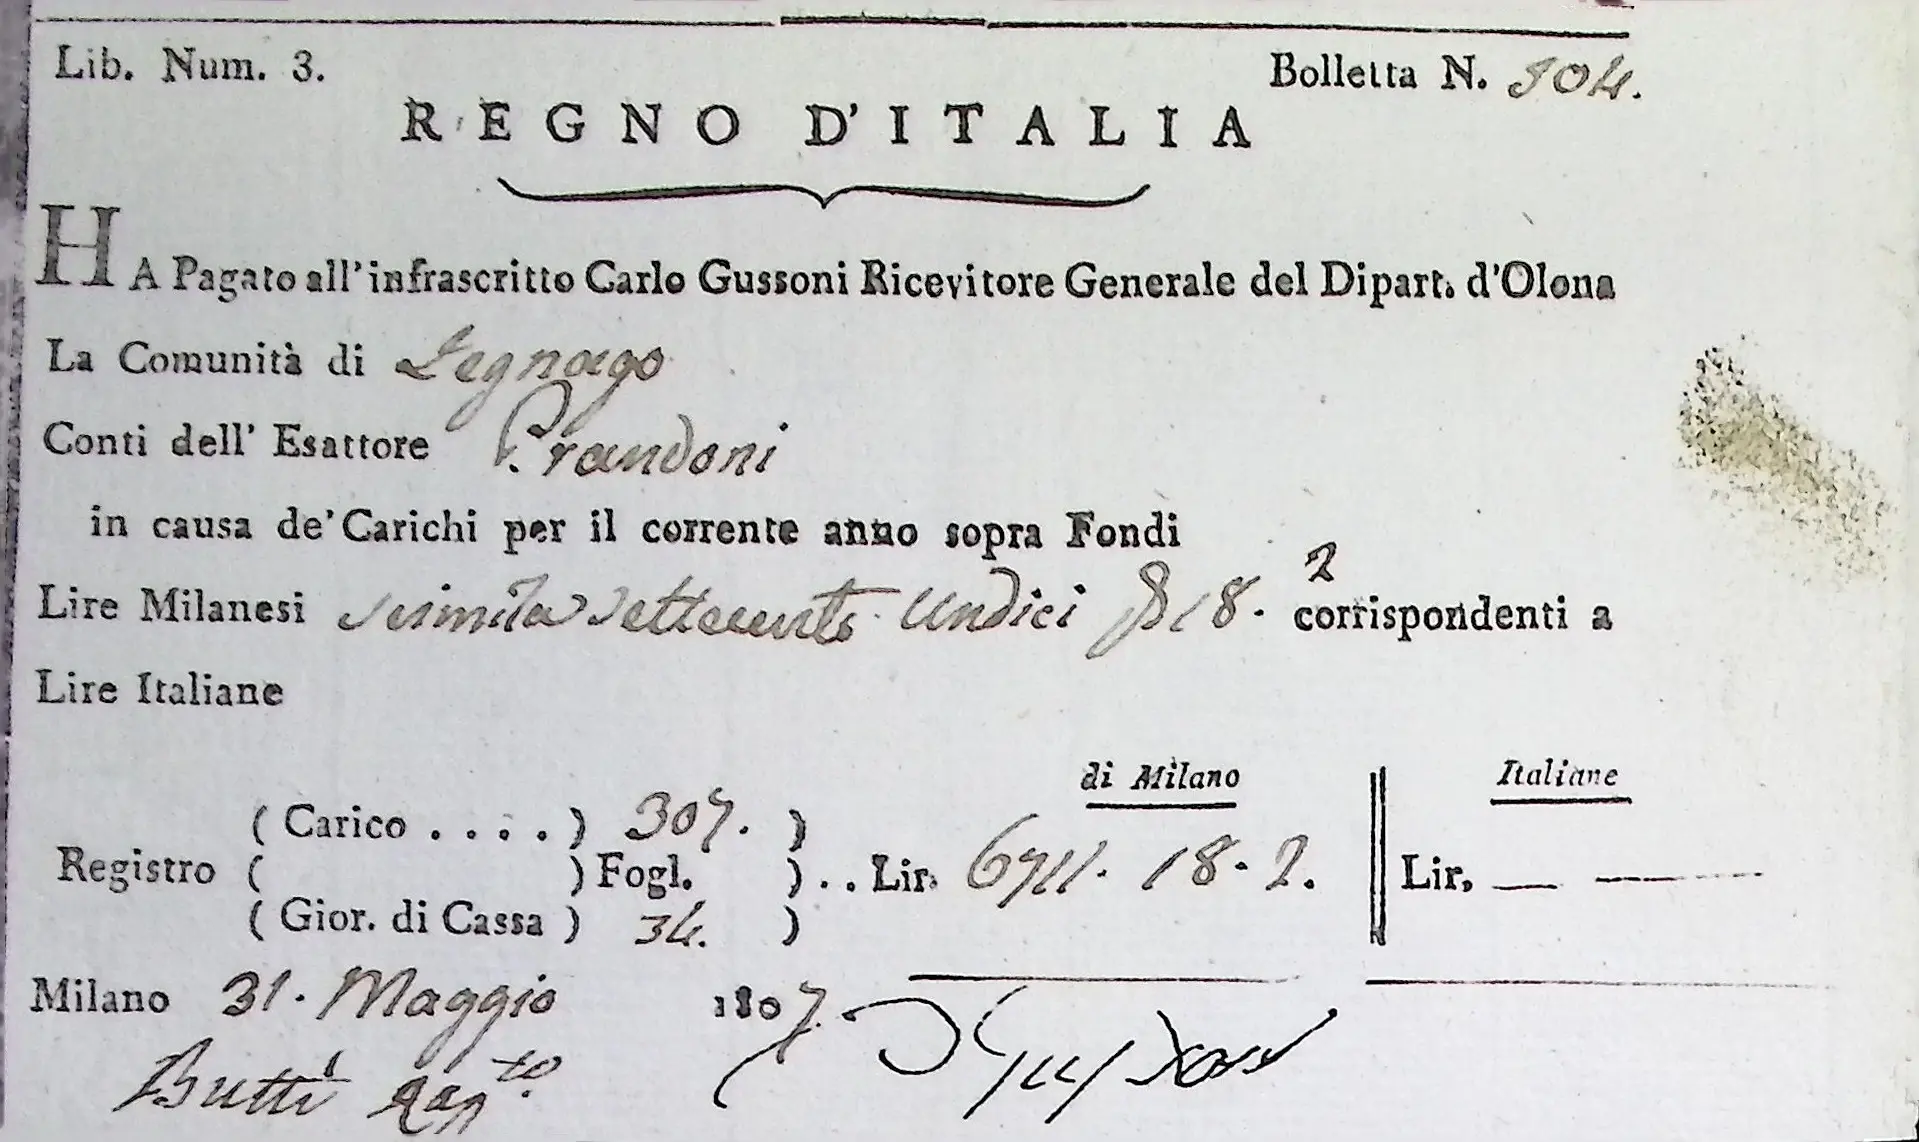 Lib. Num. 3.
Bolletta N. 804.
REGNO D'ITALIA
HA Pagato all'infrascritto Carlo Gussoni Ricevitore Generale del Dipart. d'Olona
La Comunità di Legnago
Conti dell' Esattore Prandoni
in causa de' Carichi per il corrente anno sopra Fondi
Lire Milanesi Seimila Settecento Undici 18. 2 corrispondenti a
Lire Italiane
di Milano Italiane
( Carico . . . . ) 307. )
Registro ( ) Fogl. ) . . Lir. 6711. 18. 2. Lir.
( Gior. di Cassa ) 34. )
Milano 31. Maggio 1807.
Butti